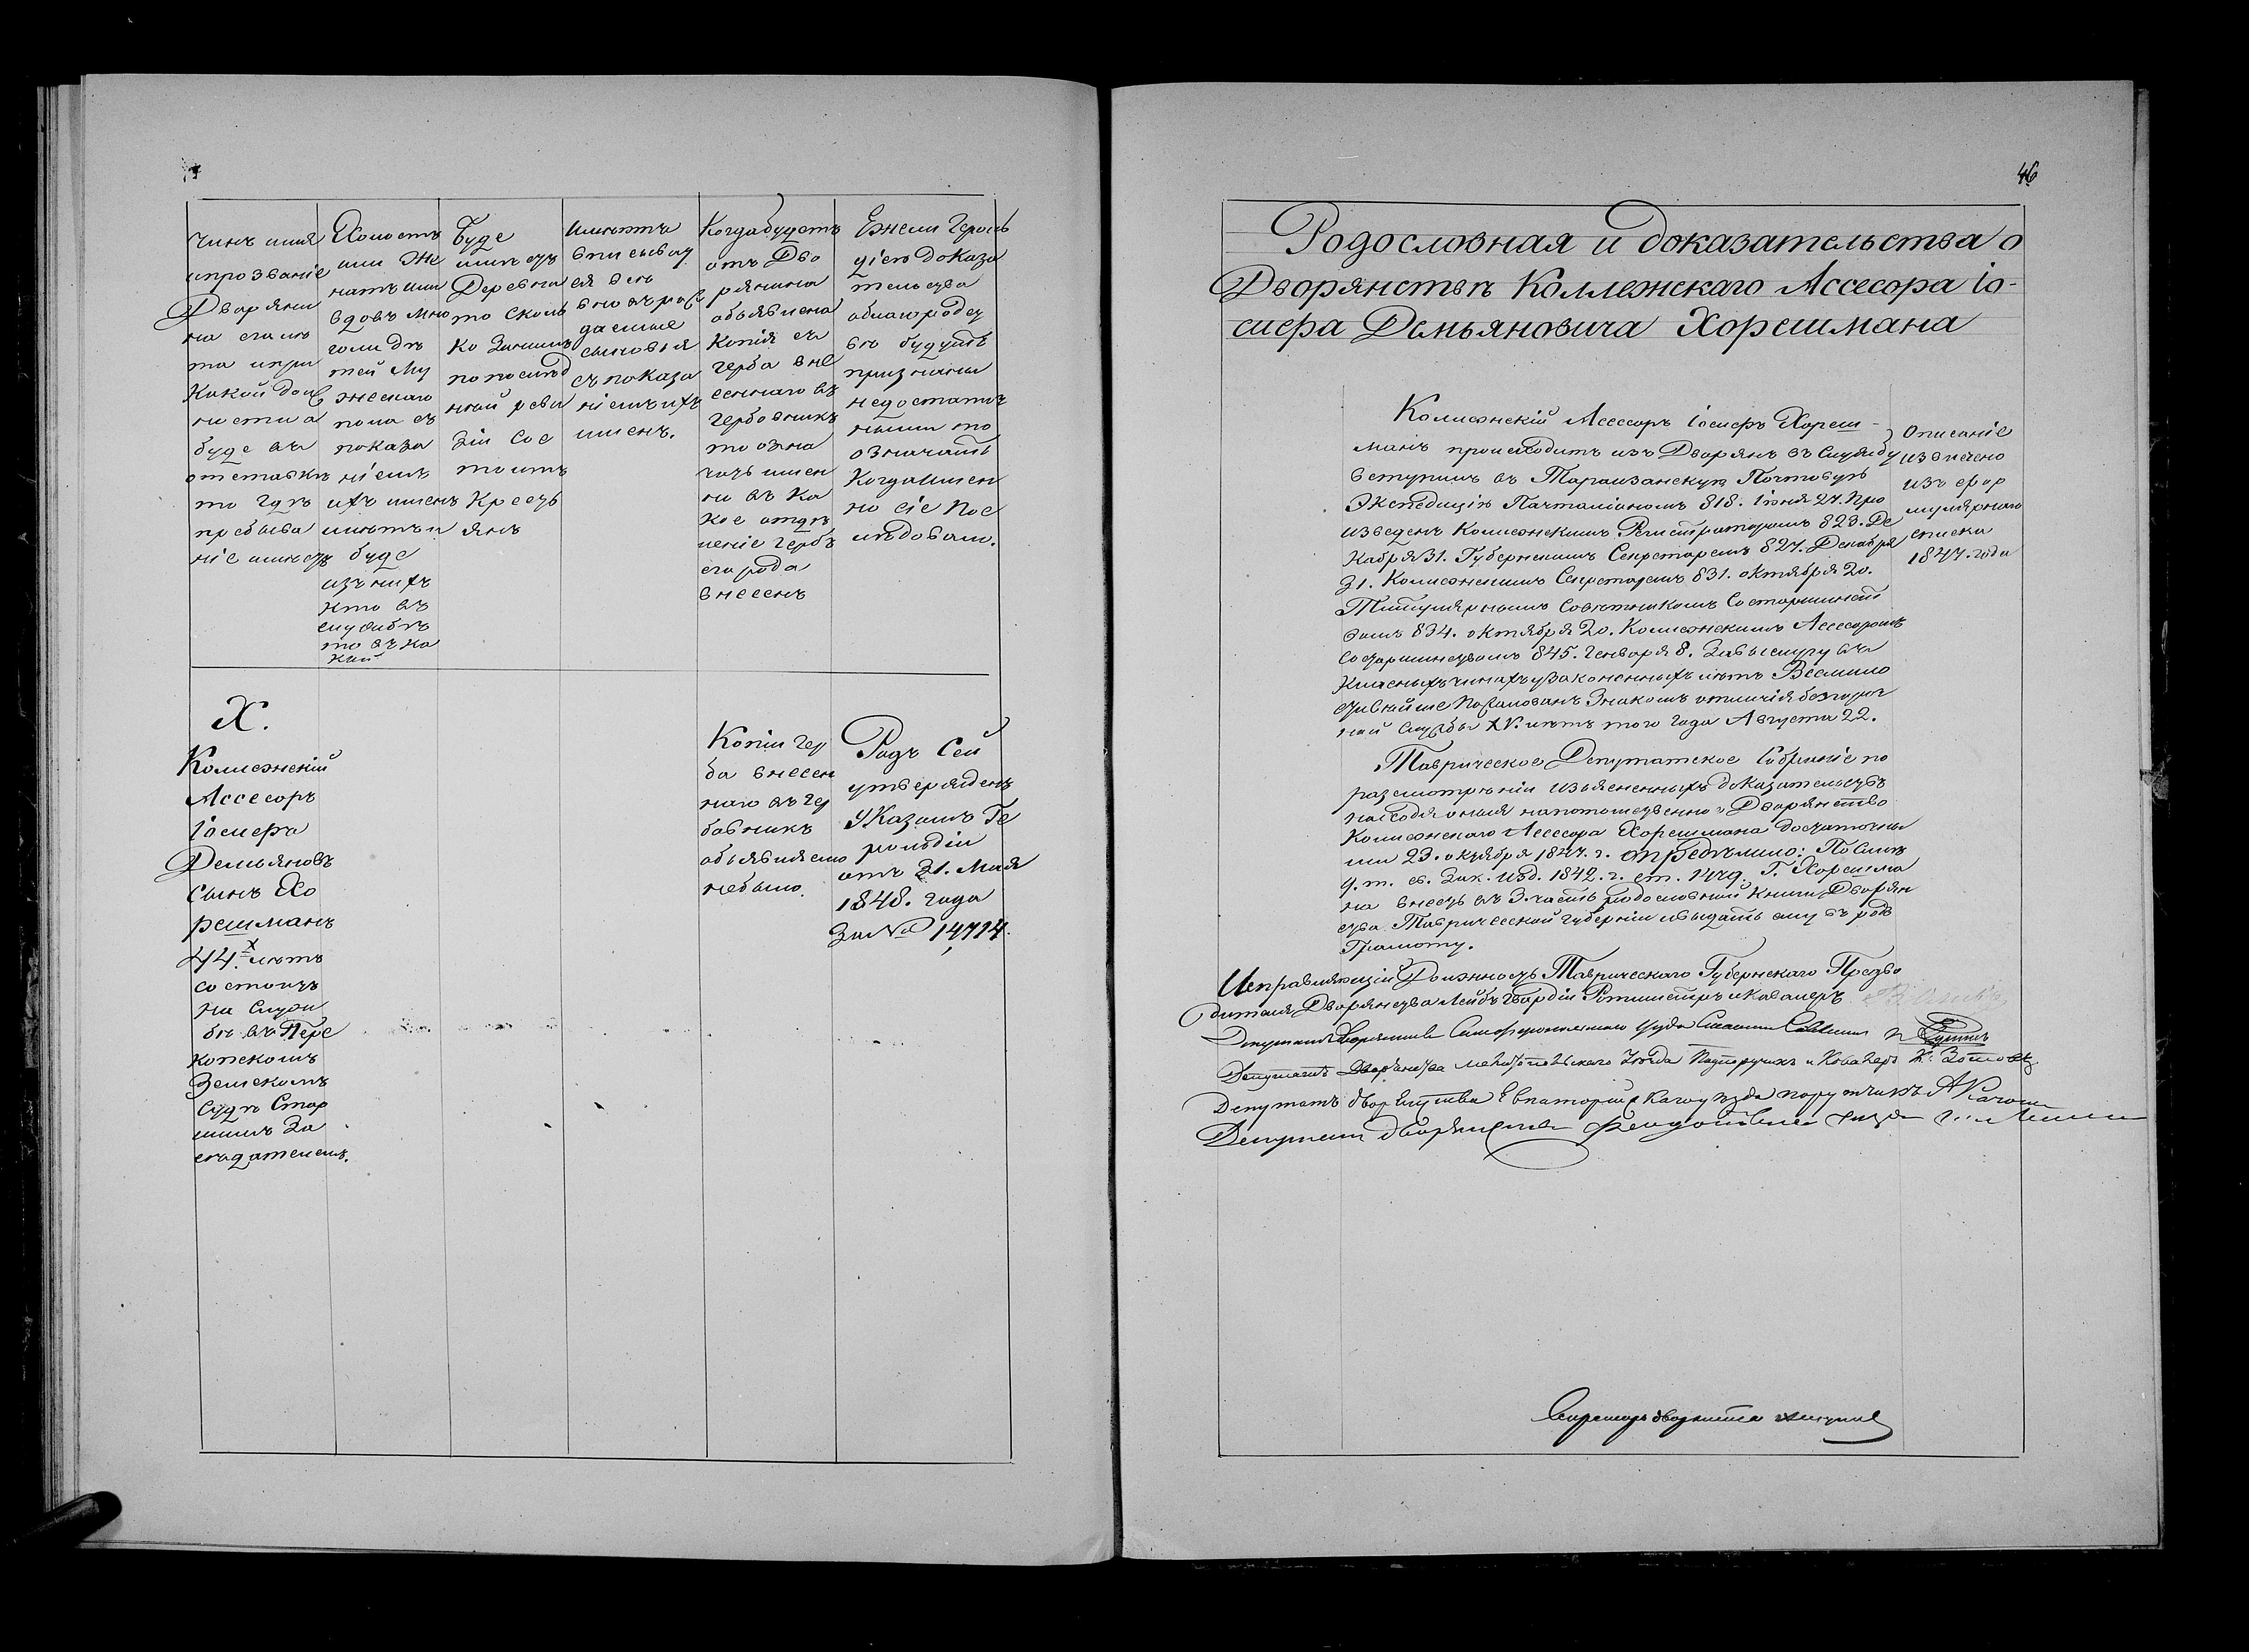 Чинъ имя
и прозваніе
Дворяни
на его лѣ
та и при
какой дол
ности а
буде въ
отставкѣ
то гдѣ
пребыва
ніе имѣетъ
Холостъ
или же
натъ или
вдовъ мно
го ли дѣ
тей му
жескаго
пола съ
показа
ніемъ
ихъ именъ
и лѣтъ и
буде
изъ нихъ
кто въ
службѣ
то въ ка
кой
Буде
имѣетъ
деревни
то сколь
ко за нимъ
по послѣд
ней реви
зіи сос
тоитъ
кресть
янъ
Имѣютъ
вписыват
ся всѣ
вновь рож
даемые
сыновья
съ показа
ніемъ ихъ
именъ.
Когда будетъ
отъ Дво
рянина
объявлена
копія съ
герба вне
сеннаго въ
гербовникъ
то озна
чать имен
но въ ка
кое отдѣ
леніе гербъ
его рода
внесенъ
Ежели Героль
діею доказа
тельства
облагородст
во будутъ
признаны
недостаточ
ными то
означать
когда имен
но сіе пос
лѣдовало.
Х.
Коллежскій
Ассесоръ
Іосифъ
Демьяновъ
сынъ Хо
решманъ
44. лѣтъ
состоитъ
на служ
бѣ въ Пере
копскомъ
Земскомъ
судѣ Стар
шимъ За
сѣдателемъ.
Копіи гер
ба внесен
наго въ гер
бовникъ
объявляемо
небыло.
Родъ Сей
утвержденъ
Указомъ Ге
рольдіи
отъ 31. Мая
1848. года
За № 14,714.
46
Родословная и доказательства о
Дворянствѣ Коллежскаго Ассесора Іо-
сифа Демьяновича Хорешмана
Коллежскій Ассесоръ Іосифъ Хореш-
манъ происходитъ изъ Дворянъ въ Службу
вступилъ въ Почтовую
Экспедицію Почталіономъ 818. Іюня 27. Про
изведенъ Коллежскимъ Регистраторомъ 823. Де
кабря 31. Губернскимъ Секретаремъ 827. Декабря
31. Коллежскимъ Секретаремъ 831. октября 20.
Титулярнымъ Совѣтникомъ со старшинст
вомъ 834. октября 20. Коллежскимъ Ассесоромъ
со старшинствомъ 845. Генваря 8. За выслугу въ
класныхъ чинахъ узаконенныхъ лѣтъ Всемило
стивѣйше пожалованъ Знакомъ отличія безпороч
ной службы XV. лѣтъ того года Августа 22.
Описаніе
извлечено
изъ фор
мулярнаго
списка
1847. года
Таврическое Депутатское Собраніе по
разсмотрѣніи изъясненныхъ доказательствъ
находя оныя на потомственное Дворянство
Коллежскаго Ассесора Хорешмана достаточны
ми 23. октября 1847. г. опредѣлило: По силѣ
9. т. св. Зак. изд. 1842. г. ст. Г. Хорешма
на внесть въ 3. часть родословной Книги Дворян
ства Таврической Губерніи и выдать ему въ родъ
Грамоту.
Исправляющій Должность Таврическаго Губернскаго Предво
дителя Дворянства Лейбъ Гвардіи Ротмистръ и Кавалеръ
Депутатъ Дворянства Симферопольскаго уѣзда
Депутатъ Дворянства Мелитопольскаго уѣзда Подпоручикъ и Кавалеръ
Депутатъ дворянства Евпаторійскаго уѣзда поручикъ
Депутатъ дворянства Феодосійскаго уѣзда
Секретарь дворянства